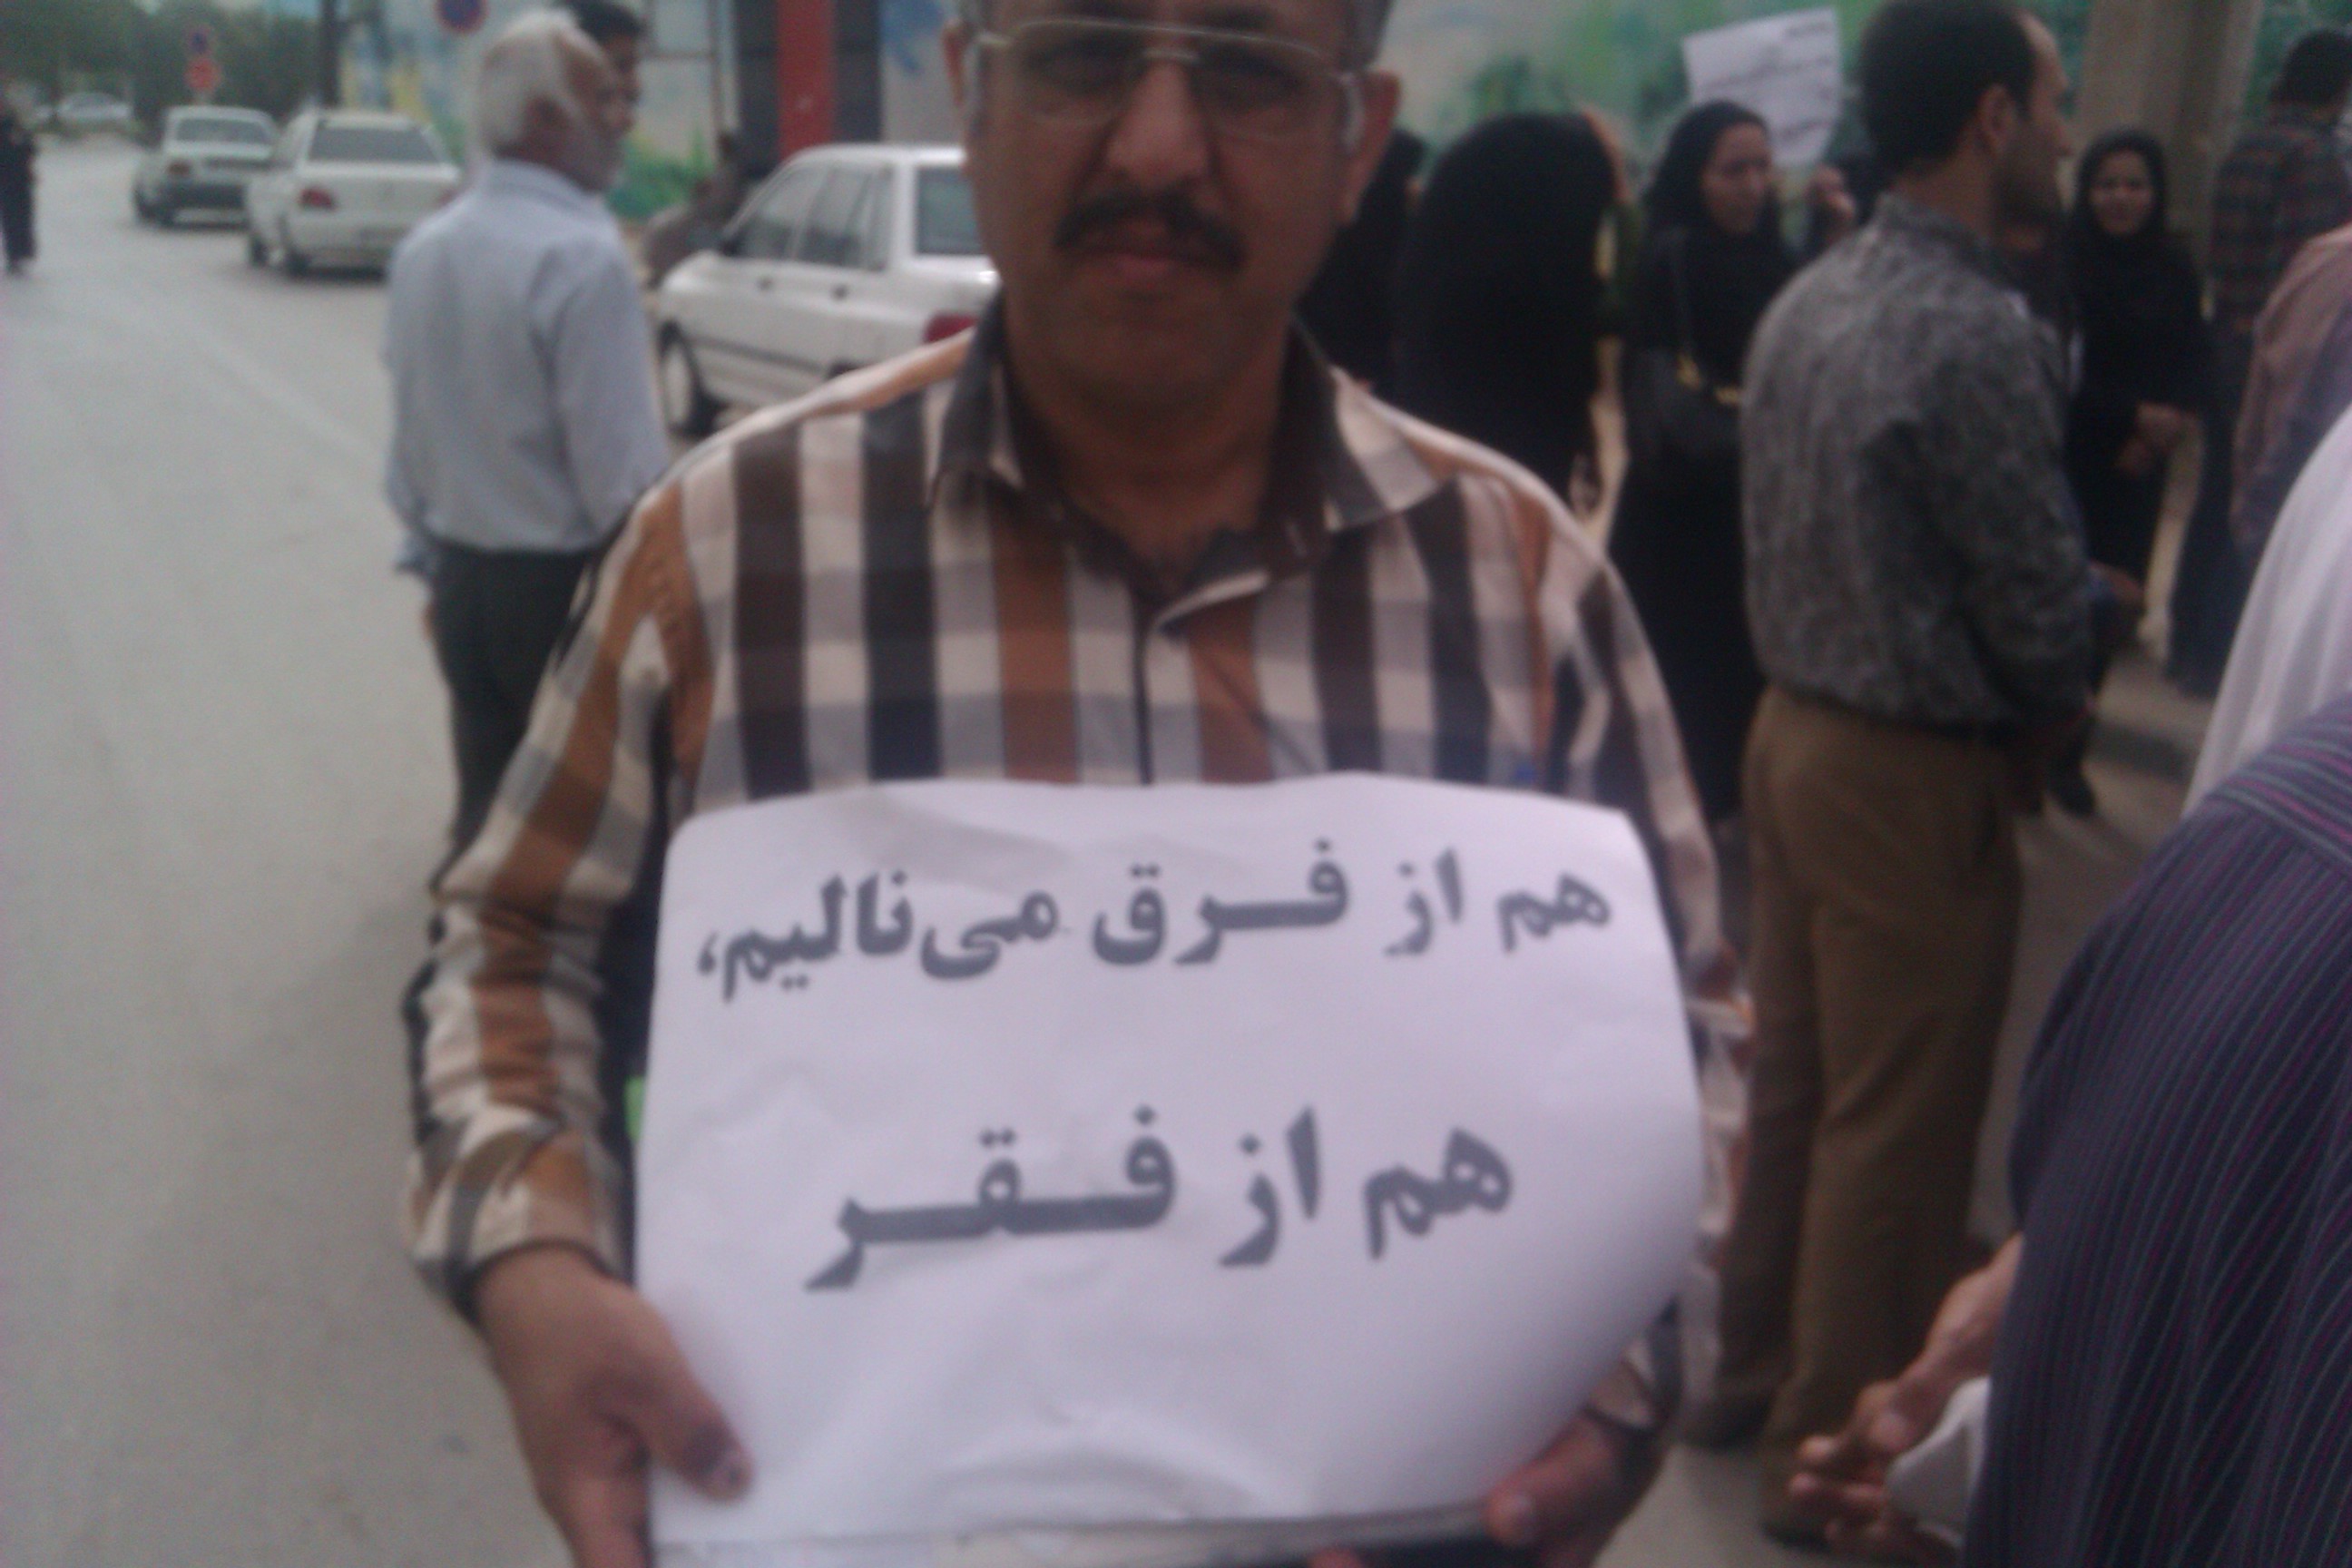 هم از فرق می‌نالیم،
هم از فقر